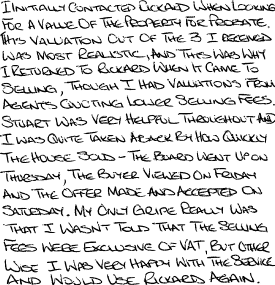 I INITIALLY CONTACTED RICKARD WHEN LOOKING
FOR A VALUE OF THE PROPERTY FOR PROBATE.
HIS VALUATION OUT OF THE 3 I RECEIVED
WAS MOST REALISTIC, AND THIS WAS WHY
I RETURNED TO RICKARD WHEN IT CAME TO
SELLING, THOUGH I HAD VALUATIONS FROM
AGENTS QUOTING LOWER SELLING FEES.
STUART WAS VERY HELPFUL THROUGHOUT AND
I WAS QUITE TAKEN ABACK BY HOW QUICKLY
THE HOUSE SOLD - THE BOARD WENT UP ON
THURSDAY, THE BUYER VIEWED ON FRIDAY
AND THE OFFER MADE AND ACCEPTED ON
SATURDAY. MY ONLY GRIPE REALLY WAS
THAT I WASN'T TOLD THAT THE SELLING
FEES WERE EXCLUSIVE OF VAT, BUT OTHER
WISE I WAS VERY HAPPY WITH THE SERVICE
AND WOULD USE RICKARDS AGAIN.